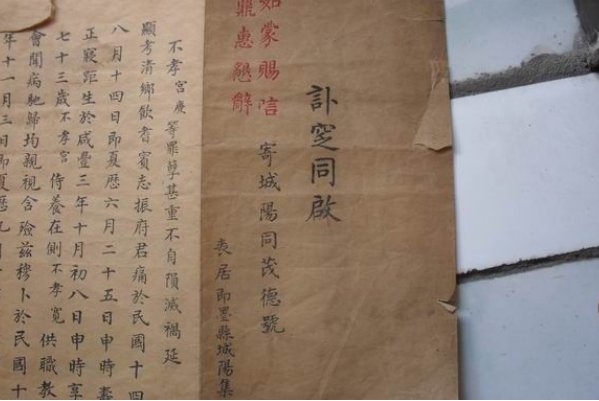 訃窆同啟
如蒙賜唁 寄城陽同茂德號
鼎惠懇辭
喪居即墨縣城陽集
不孝宮慶等罪孽甚重不自隕滅禍延
顯考清鄉飲耆賓志振府君痛於民國十四
八月十四日即夏歷六月二十五日申時壽
正寢距生於咸豐三年十月初八日申時享
七十三歲不孝宮侍養在側不孝寬供職教
會聞病馳歸均親視含殮茲穆卜於民國十
年十一月三日即夏歷九月